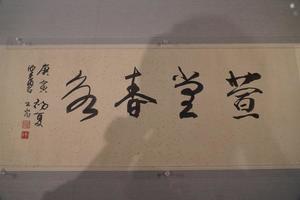 萱堂春永
庚寅初夏